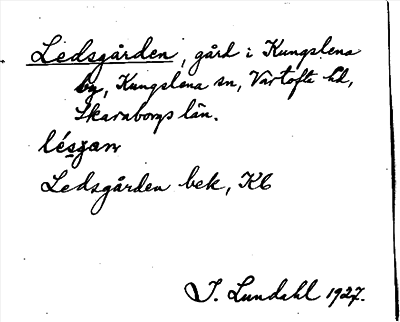 Ledsgården, gård i Kungslena
by, Kungslena sn, Vartofta hd,
Skaraborgs län.
lésgan
Ledsgården bek, Kb
I. Lundahl 1927.